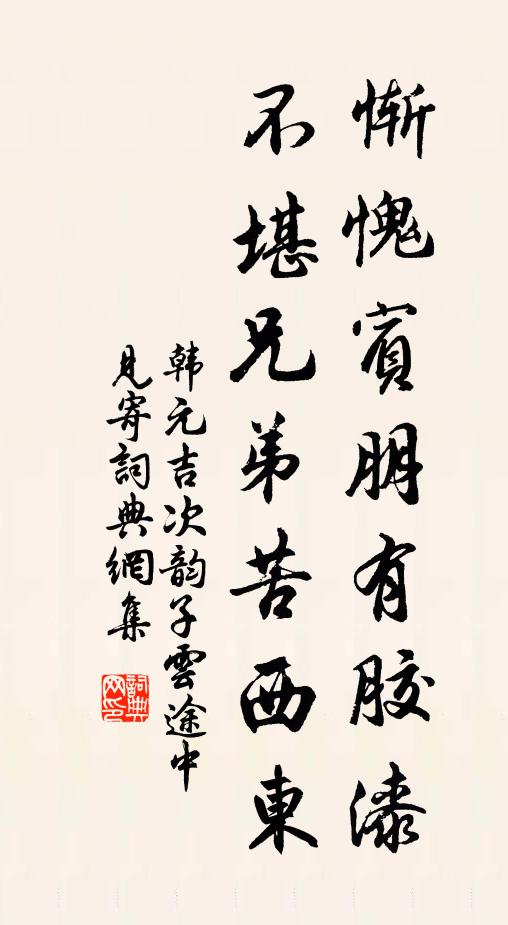 慚愧賓朋有胶漆
不堪兄弟苦西東
韩元吉次韵子雲途中
見寄詞典網集
詞典
网印